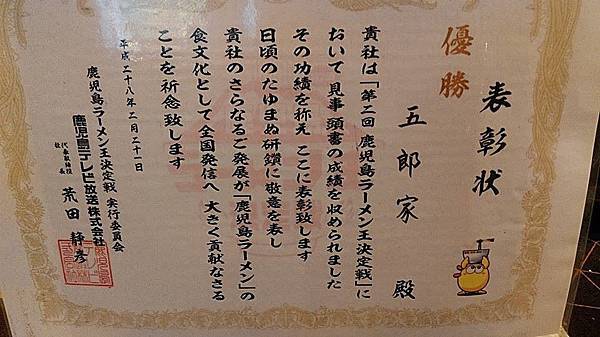 表彰状
優勝
五郎家 殿
貴社は「第二回 鹿児島ラーメン王決定戦」に
おいて 見事 頭書の成績を収められました
その功績を称え ここに表彰致します
日頃のたゆまぬ研鑽に敬意を表し
貴社のさらなるご発展が「鹿児島ラーメン」の
食文化として 全国発信へ 大きく貢献なさる
ことを 祈念 致します
平成二十八年二月二十一日
鹿児島ラーメン王決定戦 実行委員会
鹿児島テレビ放送株式会社
代表取締役社長 荒田 静彦